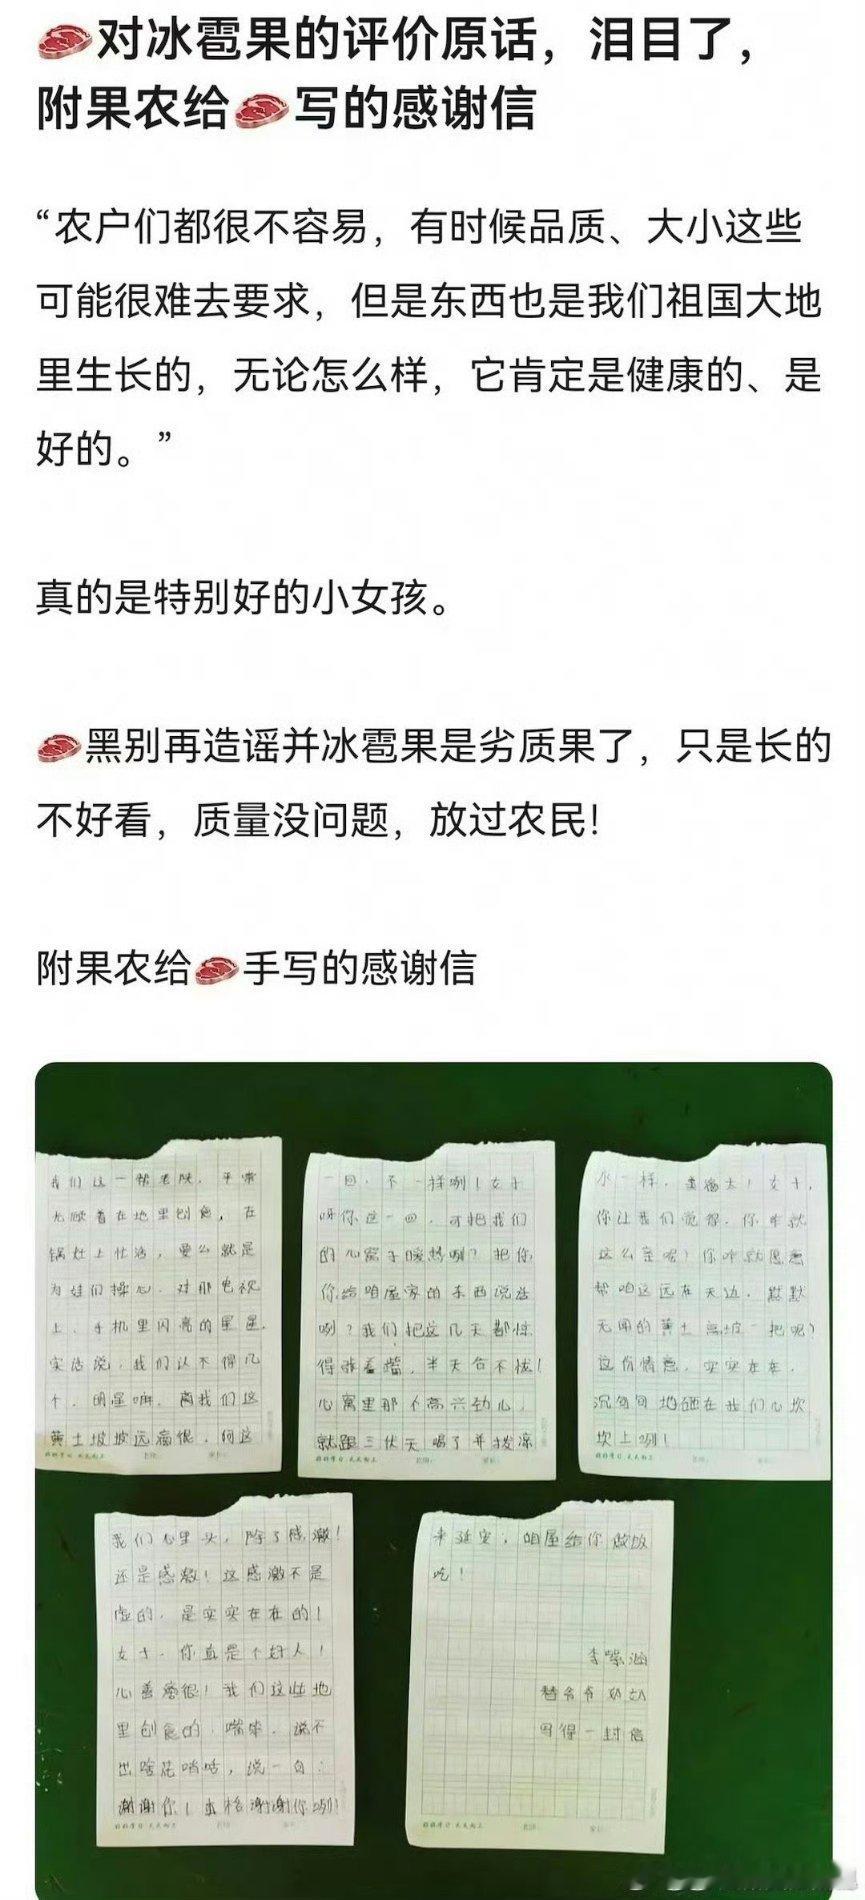 🥩对冰雹果的评价原话，泪目了，
附果农给🥩写的感谢信
“农户们都很不容易，有时候品质、大小这些
可能很难去要求，但是东西也是我们祖国大地
里生长的，无论怎么样，它肯定是健康的、是
好的。”
真的是特别好的小女孩。
🥩黑别再造谣并冰雹果是劣质果了，只是长的
不好看，质量没问题，放过农民！
附果农给🥩手写的感谢信
我们这一帮老陕，平常
光顾着在地里刨食，在
锅灶上忙活，要么就是
为娃们操心。对那电视
上、手机里闪亮的星星，
实话说，我们认不得几
个。明星嘛，离我们这
黄土坡坡远滴很。何这
好好学习 天天向上
一回，不一样咧！女子
呀你这一回，可把我们
的心窝子暖热咧？把你
你给咱屋家的东西说送
咧？我们把这几天都惊
得张着嘴，半天合不拢！
心窝里那个高兴劲儿，
就跟三伏天喝了井拨凉
好好学习 天天向上
水一样，柔滴太！女子，
你让我们觉得，你咋就
这么亲呢？你咋就愿意
帮咱这远在天边，默默
无闻的黄土高坡一把呢？
这份情意，实实在在，
沉甸甸地砸在我们心坎
坎上咧！
我们心里头，除了感激！
还是感激！这感激不是
虚的，是实实在在的！
女子，你真是个好人！
心善滴很！我们这些地
里刨食的，嘴笨，说不
出啥花哨话，说一句：
谢谢你！王格谢谢你咧！
好好学习 天天向上
来延安，咱屋给你做饭
吃！
李紫涵
替爷爷奶奶
写得一封信
好好学习 天天向上